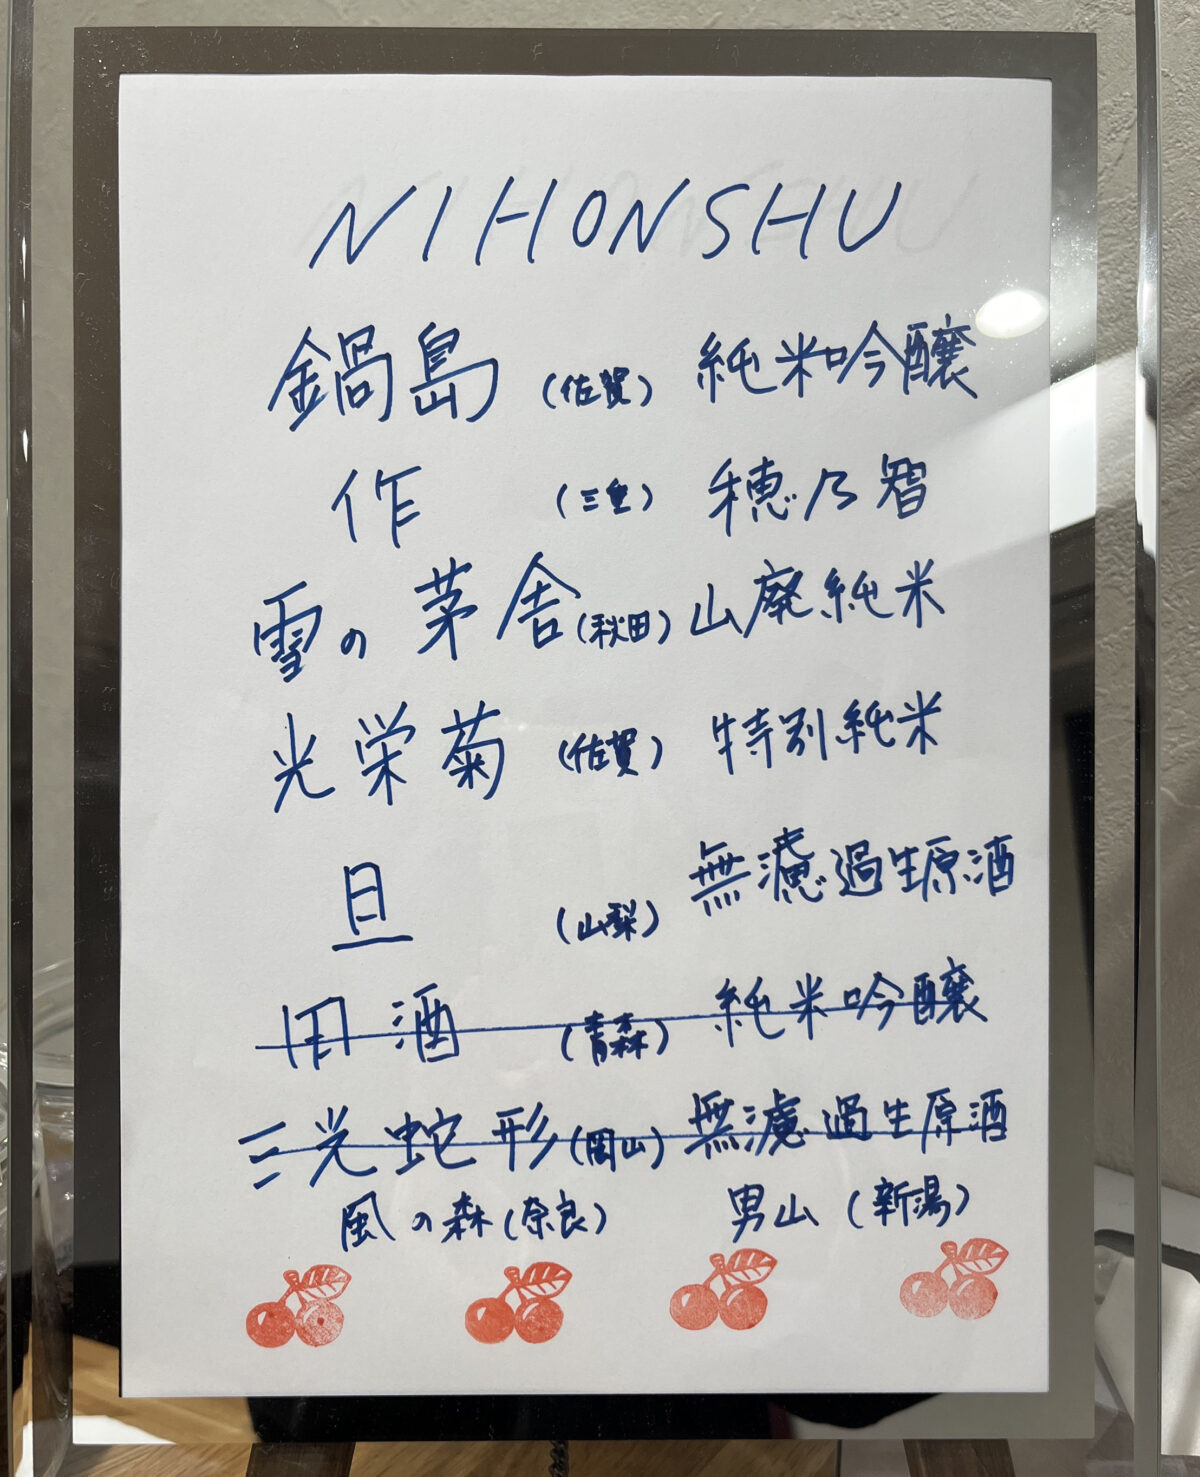 NIHONSHU
鍋島 (佐賀) 純米吟醸
作 (三重) 穂乃智
雪の茅舎 (秋田) 山廃純米
光栄菊 (佐賀) 特別純米
旦 (山梨) 無濾過生原酒
田酒 (青森) 純米吟醸
三光蛇形 (岡山) 無濾過生原酒
風の森 (奈良) 男山 (新潟)